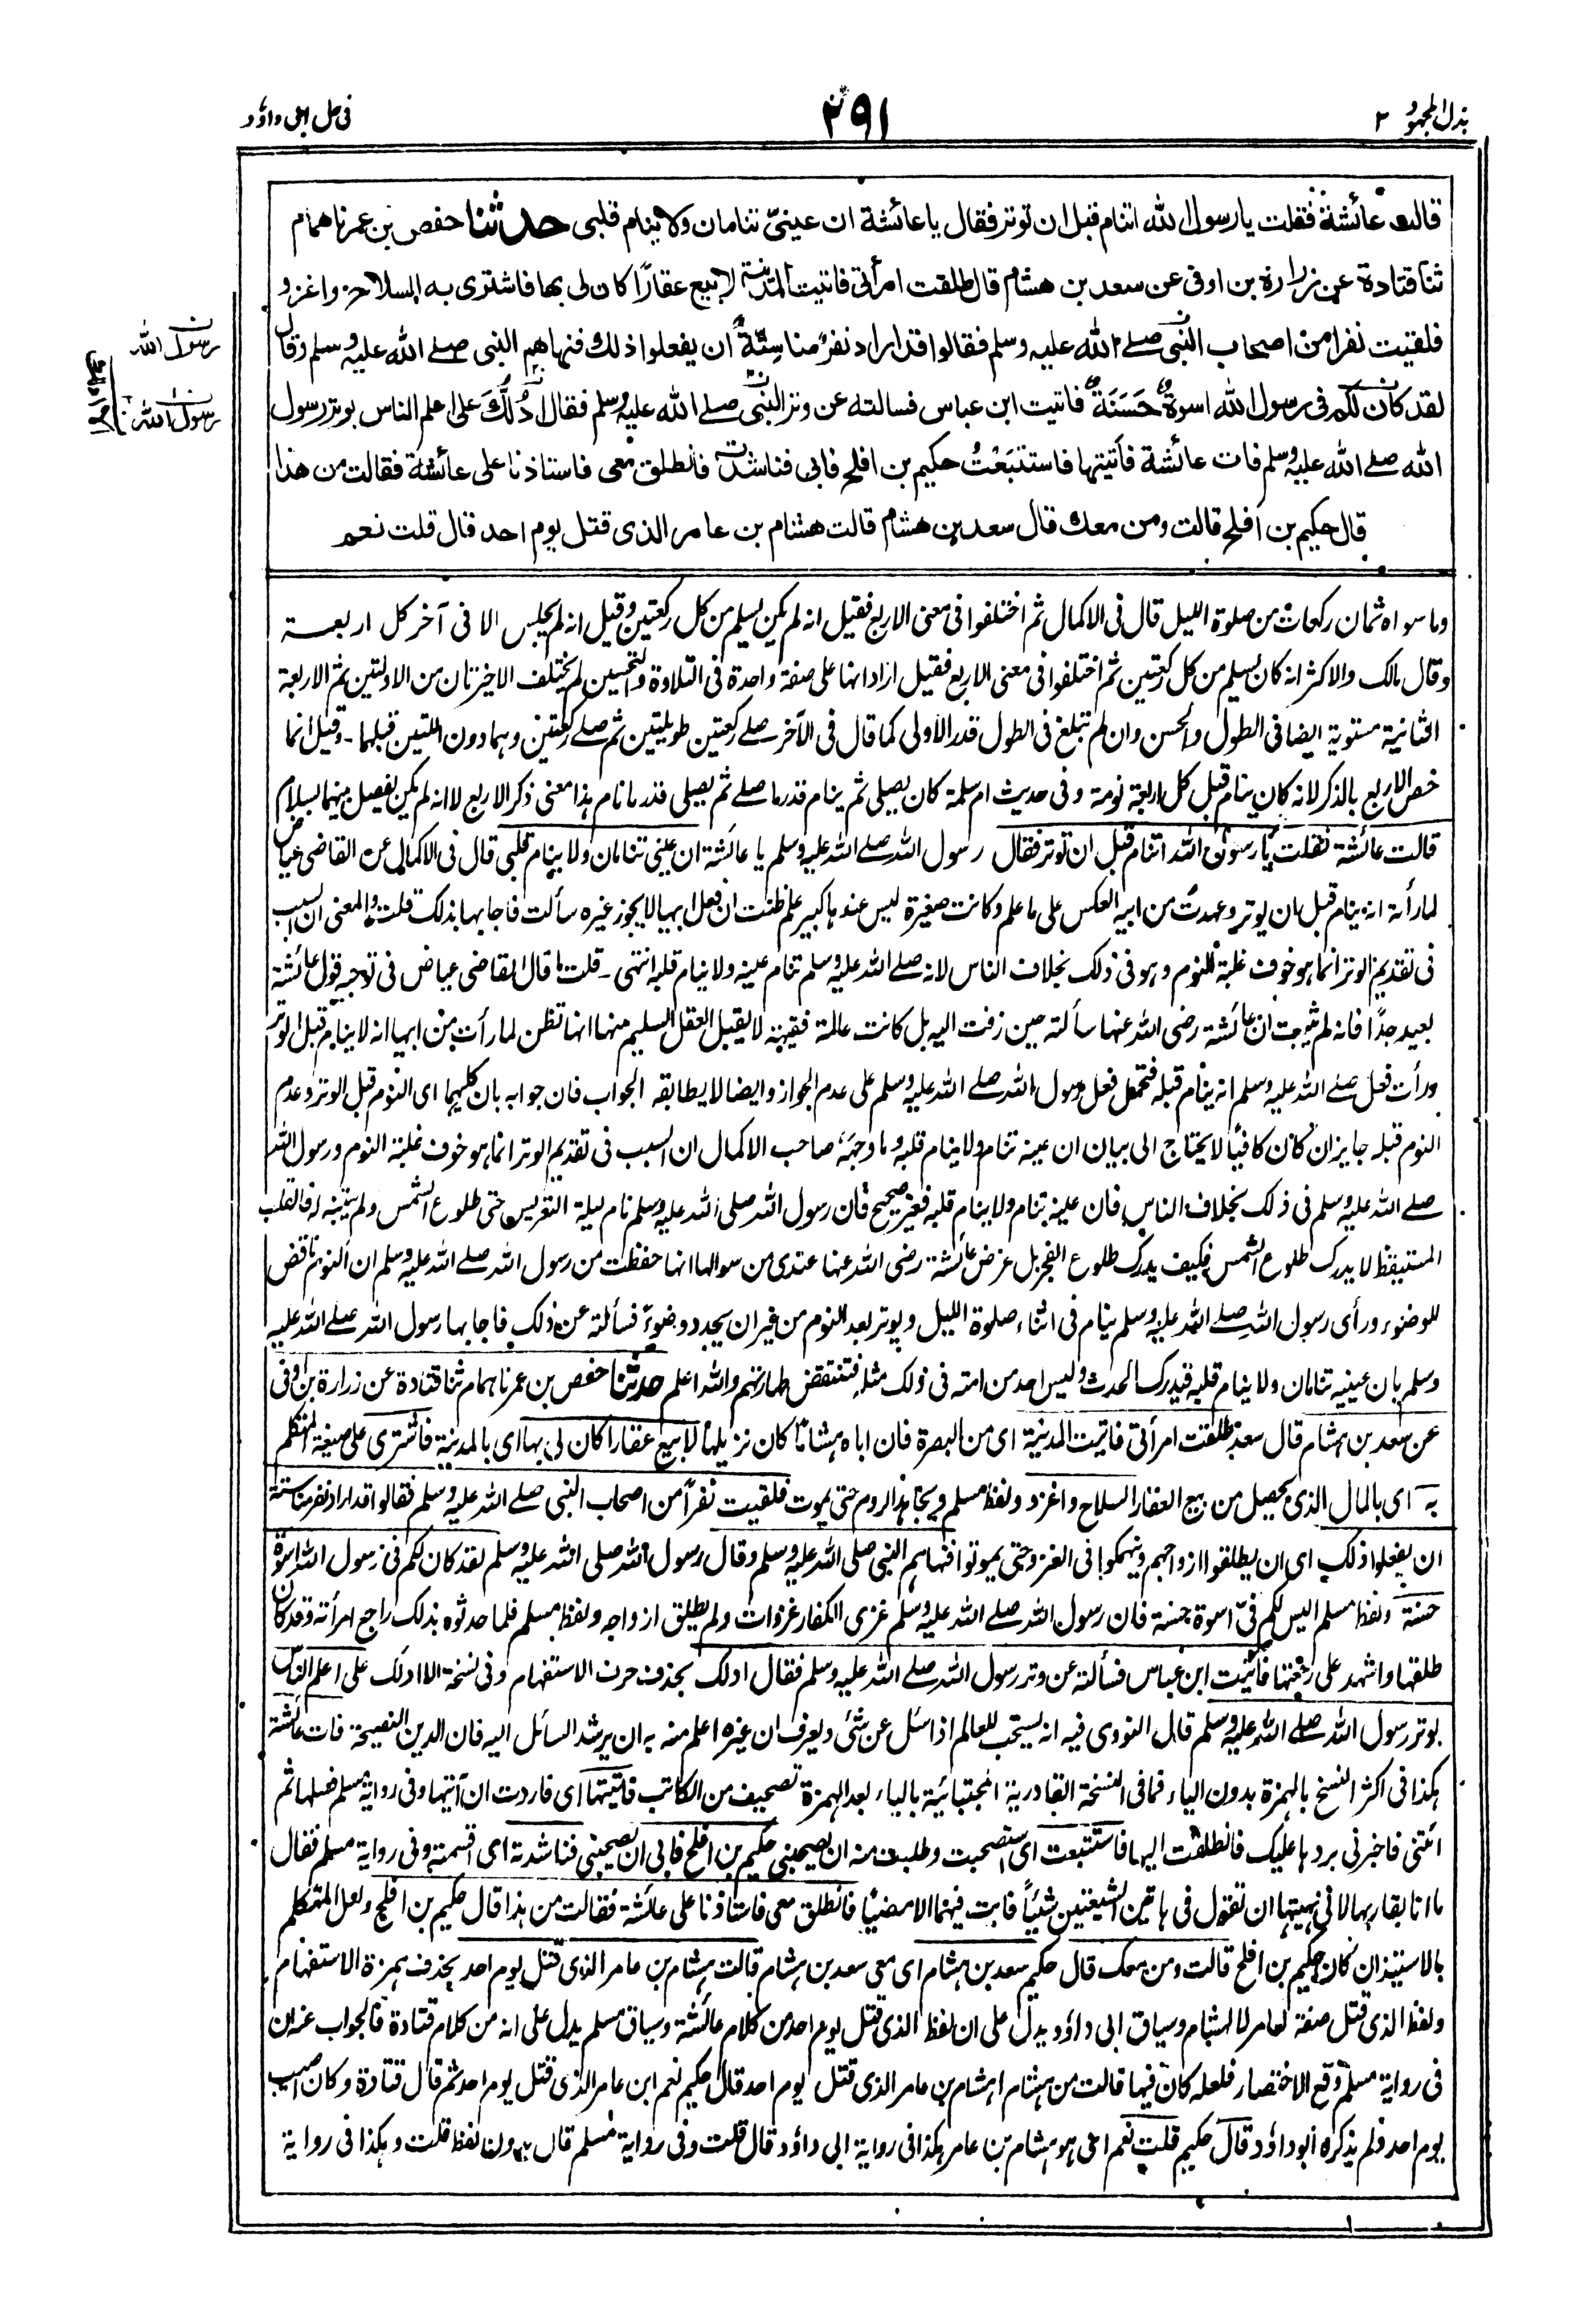 بذل المجهود ٢
٢٩١
فى حل ابى داؤد
قالت عائشة فقلت يا رسول الله اتنام قبل ان توتر فقال يا عائشة ان عينىّ تنامان ولا ينام قلبى حدثنا حفص بن عمر نا همام
ثنا قتادة عن زرارة بن اوفى عن سعد بن هشام قال طلقت امرأتى فاتيت المدينة لابيع عقارًا كان لى بها فاشترى به السلاح واغزو
فلقيت نفرا من اصحاب النبى صلے الله عليه وسلم فقالوا قد اراد نفر منا سِتَّةٌ ان يفعلوا ذلك فنهاهم النبى صلے الله عليه وسلم وقال
لقد كان لكم فى رسول الله اسوة حَسَنَةٌ فاتيت ابن عباس فسالته عن وتر النبى صلے الله عليه وسلم فقال اَدُلُّكَ على اعلم الناس بوتر رسول
الله صلے الله عليه وسلم فات عائشة فأتيتها فاستتبَعْتُ حكيم بن افلح فابى فناشدته فانطلق معى فاستاذنا على عائشة فقالت من هذا
قال حكيم بن افلح قالت ومن معك قال سعد بن هشام قالت هشام بن عامر الذى قتل يوم احد قال قلت نعم
رسول الله
رسول الله
وما سواه ثمان ركعات من صلوة الليل قال فى الاكمال ثم اختلفوا فى معنى الاربع فقيل انه لم يكن يسلم من كل ركعتين وقيل انه لم يجلس الا فى آخر كل اربعة
وقال مالك والاكثر انه كان يسلم من كل ركعتين ثم اختلفوا فى معنى الاربع فقيل ارادانها على صفة واحدة فى التلاوة والتحسين لم يختلف الاخيرتان من الاوليتين ثم الاربعة
الثانية مستوية ايضا فى الطول والحسن وان لم تبلغ فى الطول قدر الاولى كما قال فى الآخر صلے ركعتين طويلتين ثم صلے ركعتين وهما دون اللتين قبلهما - وقيل انما
خص الاربع بالذكر لانه كان ينام قبل كل اربعة نومة وفى حديث ام سلمة كان يصلى ثم ينام قدر ما صلے ثم يصلى قدر ما نام هذا معنى ذكر الاربع لا انه لم يكن يفصل بينهما بسلام
قالت عائشة فقلت يا رسول الله اتنام قبل ان توتر فقال رسول الله صلے الله عليه وسلم يا عائشة ان عينى تنامان ولا ينام قلبى قال فى الاكمال عن القاضى عياض
لما رأته انه ينام قبل ان يوتر وعهدت من ابيه العكس على ما علم وكانت صغيرة ليس عندها كبير علم ظنت ان فعل ابيها لا يجوز غيره سألت فاجابها بذلك قلت والمعنى ان السبب
فى تقديم الوتر انما هو خوف غلبة النوم وهو فى ذلك بخلاف الناس لانه صلے الله عليه وسلم تنام عينه ولا ينام قلبه انتهى - قلت ما قال القاضى عياض فى توجيه قول عائشة
بعيد جدًا فانه لم يثبت ان عائشة رضى الله عنها سألته حين زفت اليه بل كانت عالمة فقيهة لا يقبل العقل السليم منها انها تظن لما رأت من ابيها انه لا ينام قبل الوتر
ورأت فعل صلے الله عليه وسلم انه ينام قبله فتحمل فعل رسول الله صلے الله عليه وسلم على عدم الجواز وايضا لا يطابقه الجواب فان جوابه بان كليهما اى النوم قبل الوتر وعدم
النوم قبله جايزان كان كافيًا لا يحتاج الى بيان ان عينه تنام ولا ينام قلبه وما وجهَهُ صاحب الاكمال ان السبب فى تقديم الوتر انما هو خوف غلبة النوم ورسول الله
صلے الله عليه وسلم فى ذلك بخلاف الناس فان عينه تنام ولا ينام قلبه فغير صحيح فان رسول الله صلى الله عليه وسلم نام ليلة التعريس حتى طلوع الشمس ولم يتنبه له فالقلب
المستيقظ لا يدرك طلوع الشمس فكيف يدرك طلوع الفجر بل غرض عائشة رضى الله عنها عندى من سوالها انها حفظت من رسول الله صلے الله عليه وسلم ان النوم ناقض
للوضوء ورأى رسول الله صلے الله عليه وسلم ينام فى اثناء صلوة الليل ويوتر بعد النوم من غير ان يجدد وضوءً فسألته عن ذلك فاجابها رسول الله صلے الله عليه
وسلم بان عينيه تنامان ولا ينام قلبه فيدرك الحدث وليس احد من امته فى ذلك مثله فتنتقض طهارتهم والله اعلم حدثنا حفص بن عمر نا همام ثنا قتادة عن زرارة بن اوفى
عن سعد بن هشام قال سعد طلقت امرأتى فاتيت المدينة اى من البصرة فان اباه هشامًا كان نزيلها لابيع عقارا كان لى بها اى بالمدينة فاشترى على صيغة المتكلم
به اى بالمال الذى يحصل من بيع العقار السلاح واغزو ولفظ مسلم ويجاهد الروم حتى يموت فلقيت نفرًا من اصحاب النبى صلے الله عليه وسلم فقالوا قد اراد نفر منا ستة
ان يفعلوا ذلك اى ان يطلقوا ازواجهم وينهمكوا فى الغزو حتى يموتوا فنهاهم النبى صلى الله عليه وسلم وقال رسول الله صلى الله عليه وسلم لقد كان لكم فى رسول الله اسوة
حسنة ولفظ مسلم اليس لكم فىّ اسوة حسنة فان رسول الله صلے الله عليه وسلم غزى الكفار غزوات ولم يطلق ازواجه ولفظ مسلم فلما حدثوه بذلك راجع امرأته وقد كان
طلقها واشهد على رجعتها فاتيت ابن عباس فسألته عن وتر رسول الله صلے الله عليه وسلم فقال ادلك بحذف حرف الاستفهام وفى نسخة الا ادلك على اعلم الناس
بوتر رسول الله صلے الله عليه وسلم قال النووى فيه انه يستحب للعالم اذا سئل عن شئ ويعرف ان غيره اعلم منه به ان يرشد السائل اليه فان الدين النصيحة فات عائشة
هكذا فى اكثر النسخ بالهمزة بدون الياء فما فى النسخة القادرية المجتبائية بالياء بعد الهمزة تصحيف من الكاتب فاتيتها اى فاردت ان آتيها وفى رواية مسلم فسلها ثم
ائتنى فاخبرنى بردها عليك فانطلقت اليها فاستتبعت اى استصحبت وطلبت منه ان يصحبنى حكيم بن افلح فابى ان يصحبنى فناشدته اى اقسمته وفى رواية مسلم فقال
ما انا بقاربها لانى نهيتها ان تقول فى هاتين الشيعتين شيئاً فابت فيهما الا مضيًا فانطلق معى فاستاذنا على عائشة فقالت من هذا قال حكيم بن افلح ولعل المتكلم
بالاستيذان كان حكيم بن افلح قالت ومن معك قال حكيم سعد بن هشام اى معى سعد بن هشام قالت هشام بن عامر الذى قتل يوم احد بحذف همزة الاستفهام
ولفظ الذى قتل صفة لعامر لا لهشام وسياق ابى داؤد يدل على ان لفظ الذى قتل يوم احد من كلام عائشة وسياق مسلم يدل على انه من كلام قتادة فالجواب عنه ان
فى رواية مسلم وقع الاختصار فلعله كان فيها قالت من هشام اهشام بن عامر الذى قتل يوم احد قال حكيم نعم ابن عامر الذى قتل يوم احد ثم قال قتادة وكان اصيب
يوم احد فلم يذكره ابو داؤد قال حكيم قلت نعم اى هو هشام بن عامر هكذا فى رواية ابى داؤد قال قلت وفى رواية مسلم قال بدون لفظ قلت وهكذا فى رواية